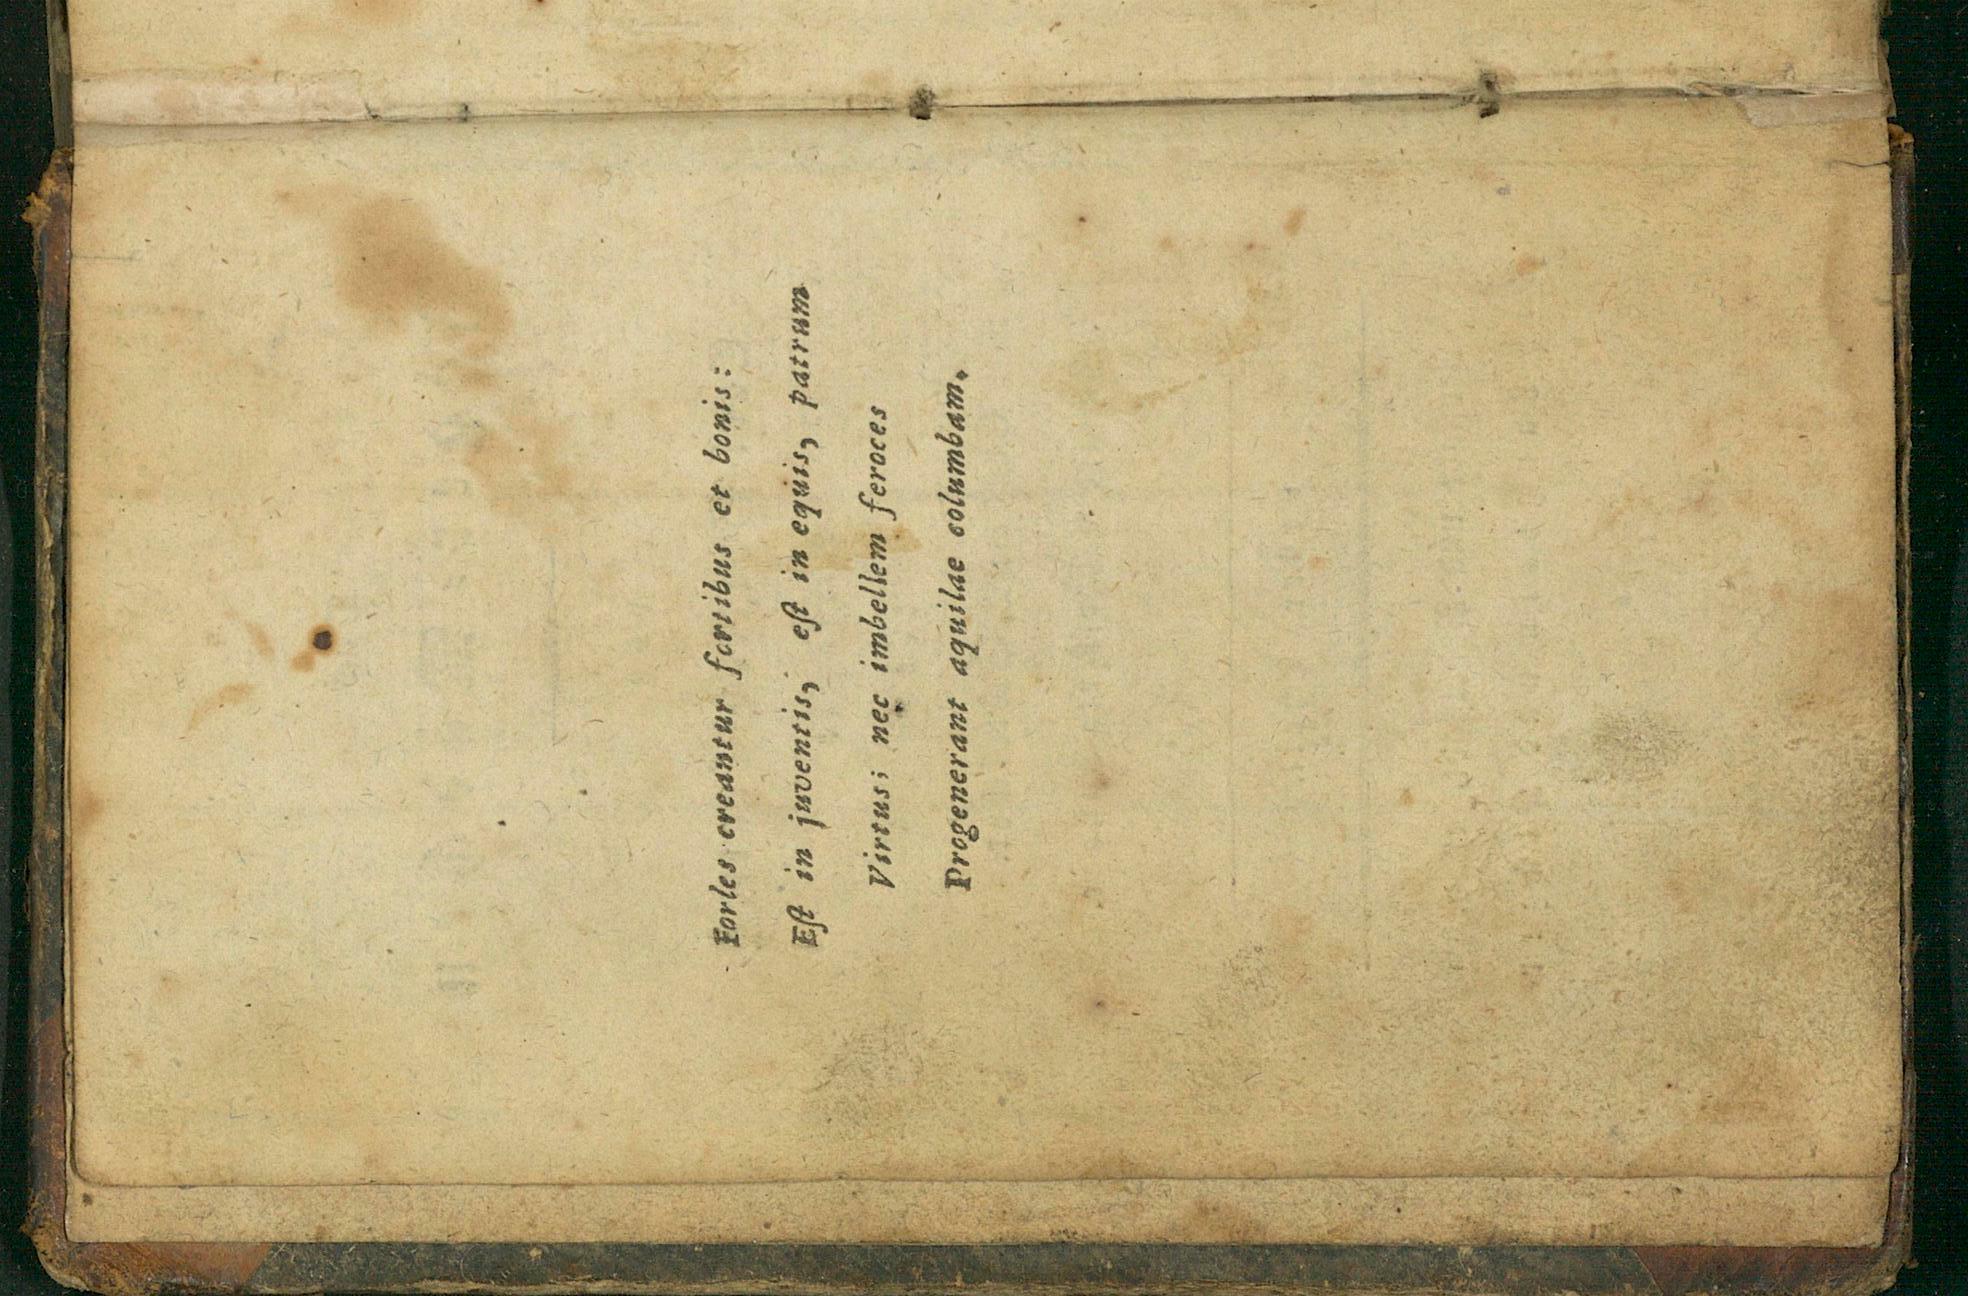 Forles creantur fortibus et bonis:
Eſt in juventis, eſt in equis, patrum
Virtus; nec imbellem feroces
Progenerant aquilae columbam.